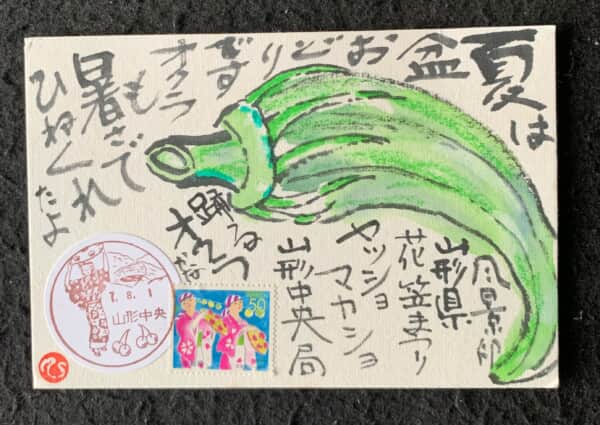 夏は
盆
おどり
です
オクラ
も
暑さで
ひねくれ
たよ
踊る
オクラ
かな
風景印
山形県
花笠まつり
ヤッショ
マカショ
山形中央局
7.8.1
山形中央
50